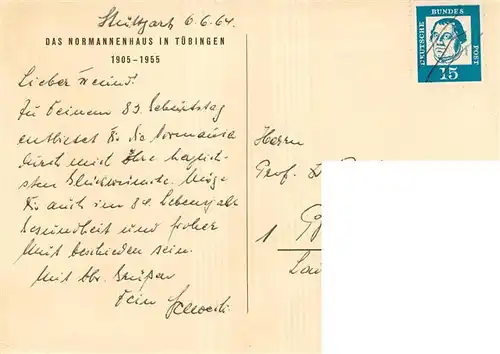 Stuttgart 6.6.64.
DAS NORMANNENHAUS IN TÜBINGEN
1905-1955
Lieber Freund!
Zu Deinem 83. Geburtstag
entbietet Dir die Normannia
durch mich Ihre herzlich-
sten Glückwünsche. Möge
Dir auch im 84. Lebensjahr
Gesundheit und froher
Mut beschieden sein.
Mit bbr. Grüßen
Dein
DEUTSCHE BUNDES POST
15
Herrn
Prof. D
1